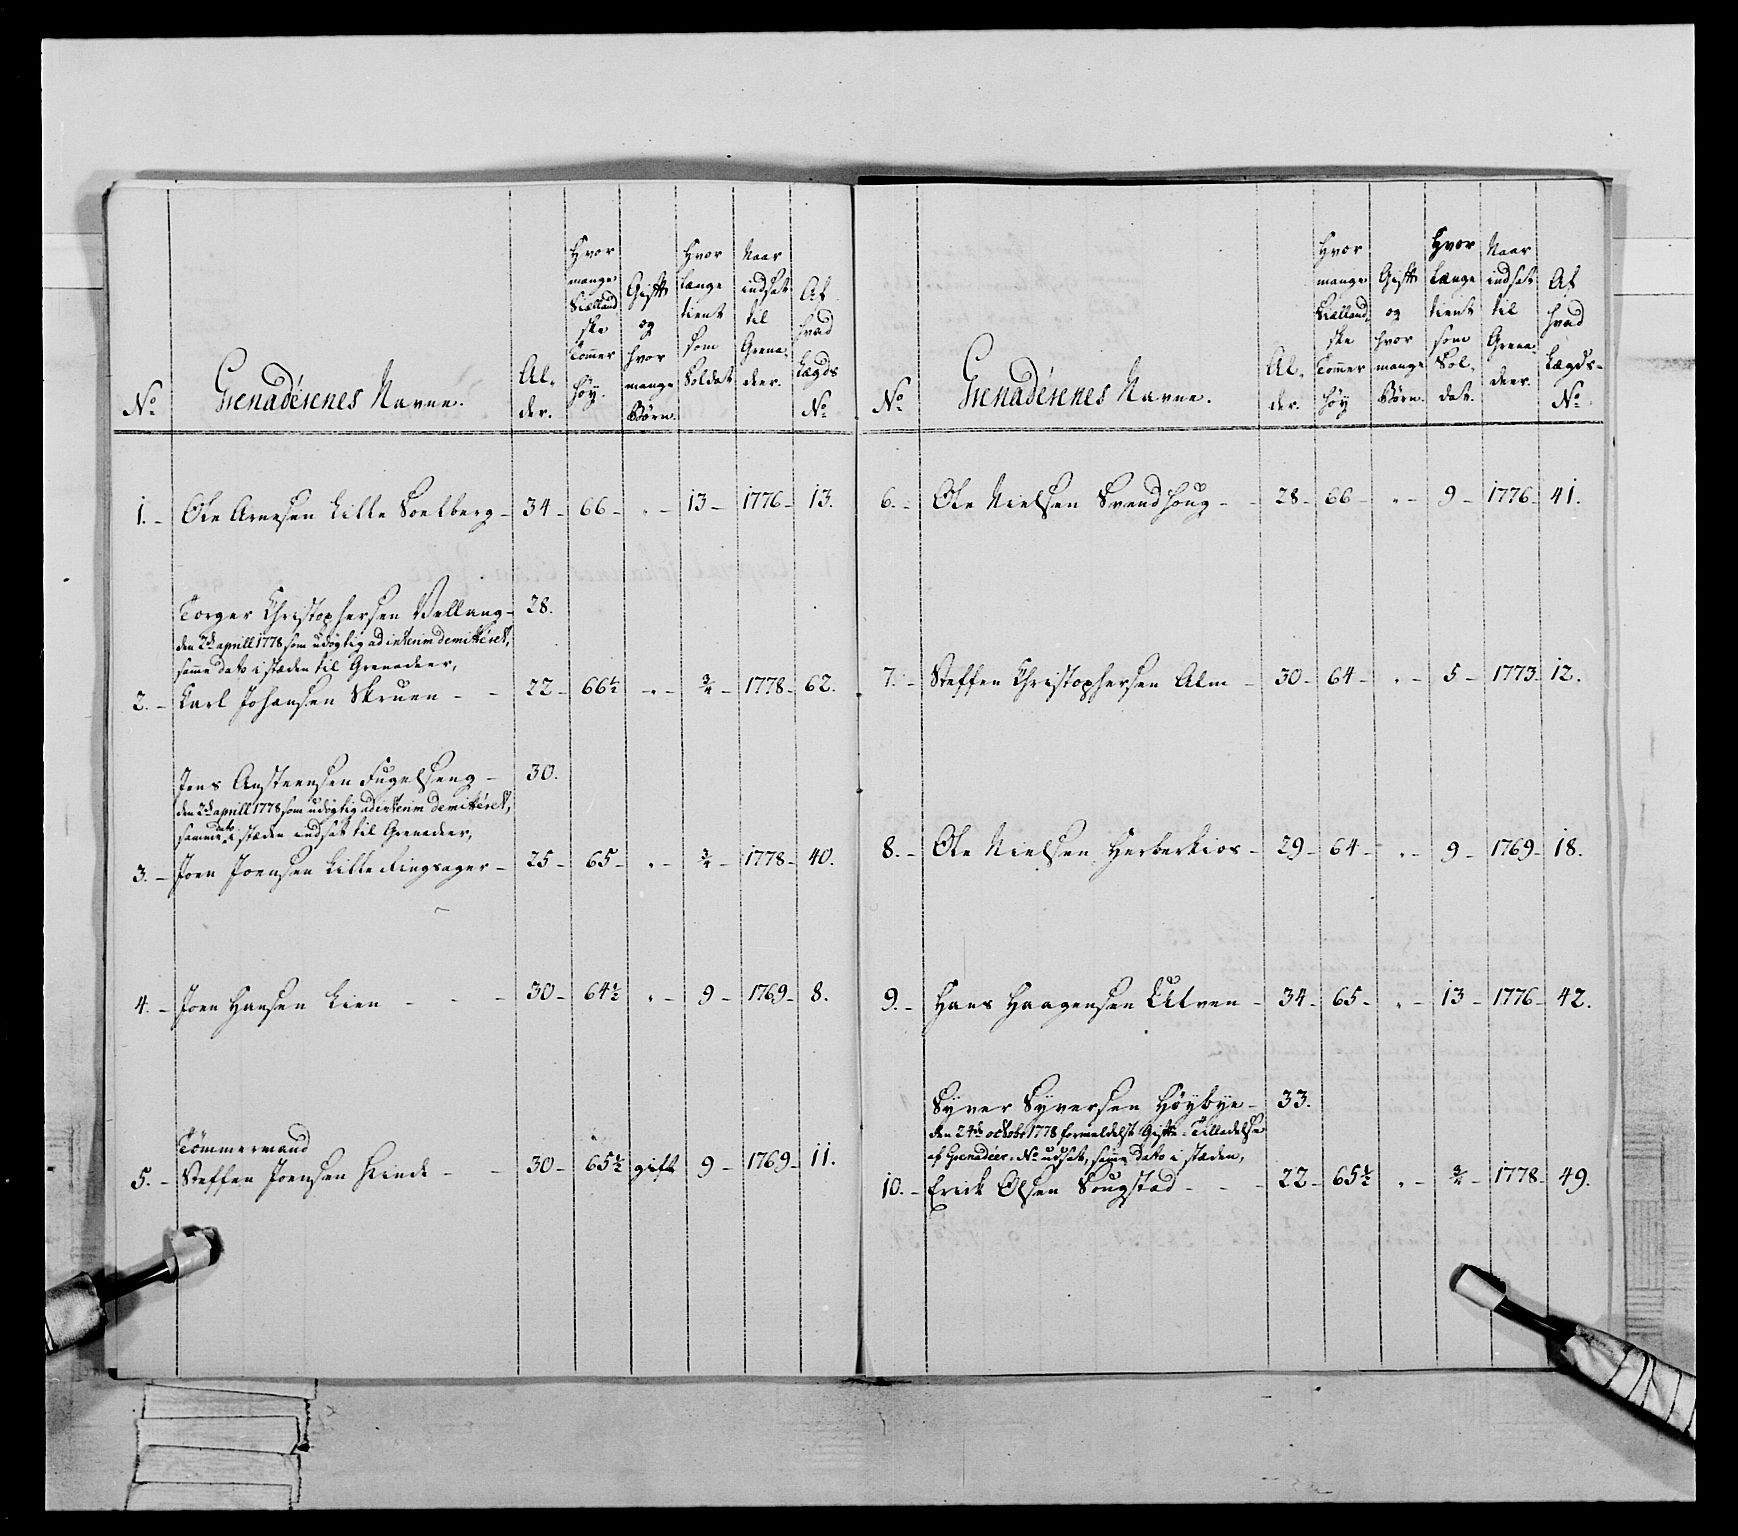 No
Grenadérenes Navne.
Al-
der.
Hvor
mange
Siælland
ske
Tommer
høy.
Gift
og
hvor
mange
Børn.
Hvor
Længe
tient
som
Soldat
Naar
indsat
til
Grena-
deer.
Af
hvad
Lægds
No
1. - Ole Arnesen Lille Soelberg - 34 - 66 - " - 13 - 1776 - 13.
Torger Christophersen Vellang - 28.
den 2de aprill 1778 som udøgtig ad interim demitteret,
samme dato i stæden til Grenadeer,
2. - Carl Johansen Skruen - - 22 - 66½ - " - ¾ - 1778 - 62.
Jens Ansteensen Fugelseng - 30.
den 2de aprill 1778 som udøgtig ad interim demitteret,
samme dato i stæden indsat til Grenadeer,
3. - Joen Joensen Lille Ringsager - 25 - 65 - " - ¾ - 1778 - 40.
4. - Joen Hansen Lien - - - 30 - 64½ " - 9 - 1769 - 8.
Tømmermand
5. - Steffen Joensen Hinde - - 30 - 65½ gift 9 - 1769 - 11.
No
Grenadérenes Navne.
Al-
der.
Hvor
mange
Siælland-
ske
Tommer
høy
Gift
og
hvor
mange
Børn.
Hvor
Længe
tient
som
Sol-
dat.
Naar
indsat
til
Grena-
deer.
Af
hvad
Lægds-
No
6. - Ole Nielsen Svendhoug - - 28 - 66 - " - 9 - 1776 - 41.
7. - Steffen Christophersen Alm - 30 - 64 - " - 5 - 1773. 12.
8. - Ole Nielsen Herberkios - 29 - 64 - " - 9 - 1769 - 18.
9. - Hans Haagensen Ulven - 34 - 65 - " - 13 - 1776 - 42.
Syver Syversen Høybye - 33.
den 24de octobr 1778 formedelst Gifte-Tilladelse
af Grenadeer-No udsat, samme dato i stæden,
10. - Erick Olsen Sougstad - - - 22 - 65½ " - ¾ - 1778 - 49.